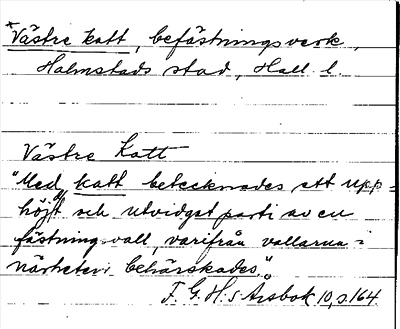 *Västre katt, befästningsverk,
Halmstads stad, Hall. l.
Västre Katt
"Med "katt betecknades ett upp=
höjt och utvidgat parti av en
fästningsvall, varifrån vallarna i
närheten behärskades."
F. G. H:s Årsbok 10, s. 164